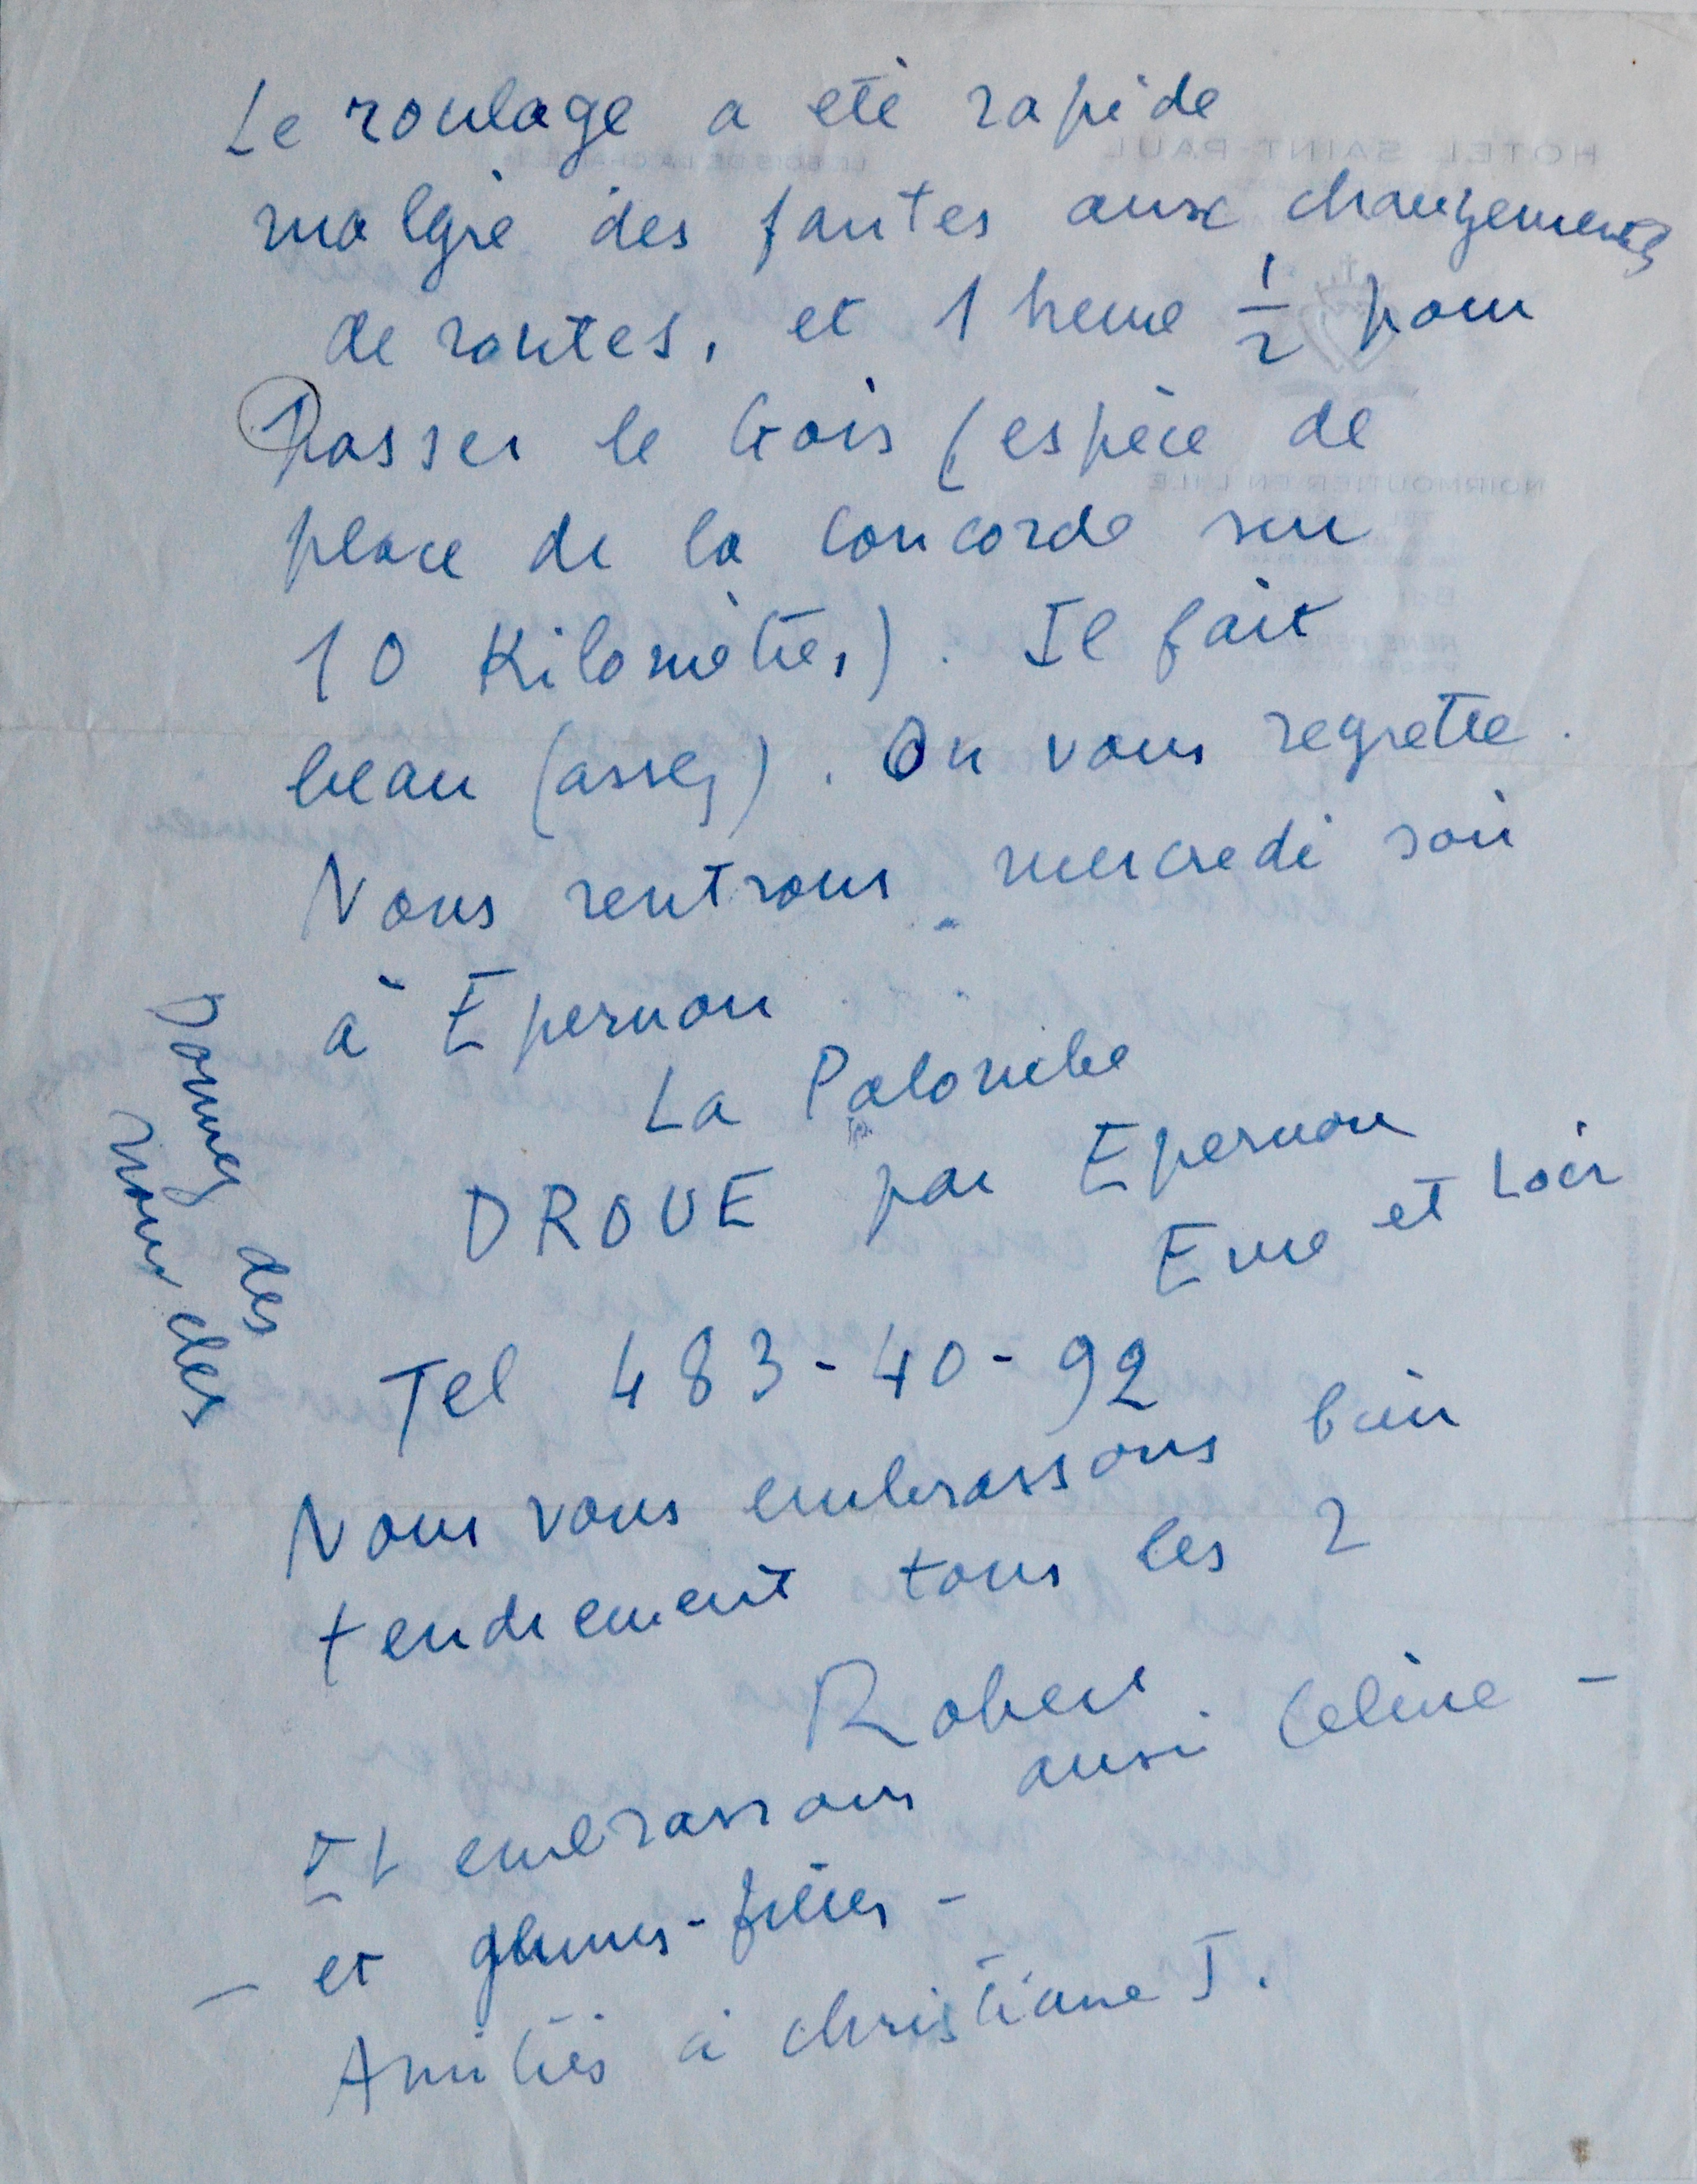 Le roulage a été rapide
malgré des fautes aux changements
de routes, et 1 heure 1/2 pour
Passer le Gois (espèce de
place de la Concorde sur
10 Kilomètres). Il fait
beau (assez). On vous regrette.
Nous rentrons mercredi soir
à Epernon
La Palombe
DROUE par Epernon
Eure et Loir
Tel 483-40-92
Nous vous embrassons bien
tendrement tous les 2
Robert
Et embrassons aussi Celine -
- et -
Amitiés à Christiane T.
Donnez des
nouvelles
HOTEL SAINT-PAUL
LE BOIS DE LA CHAIZE
NOIRMOUTIER EN L'ILE